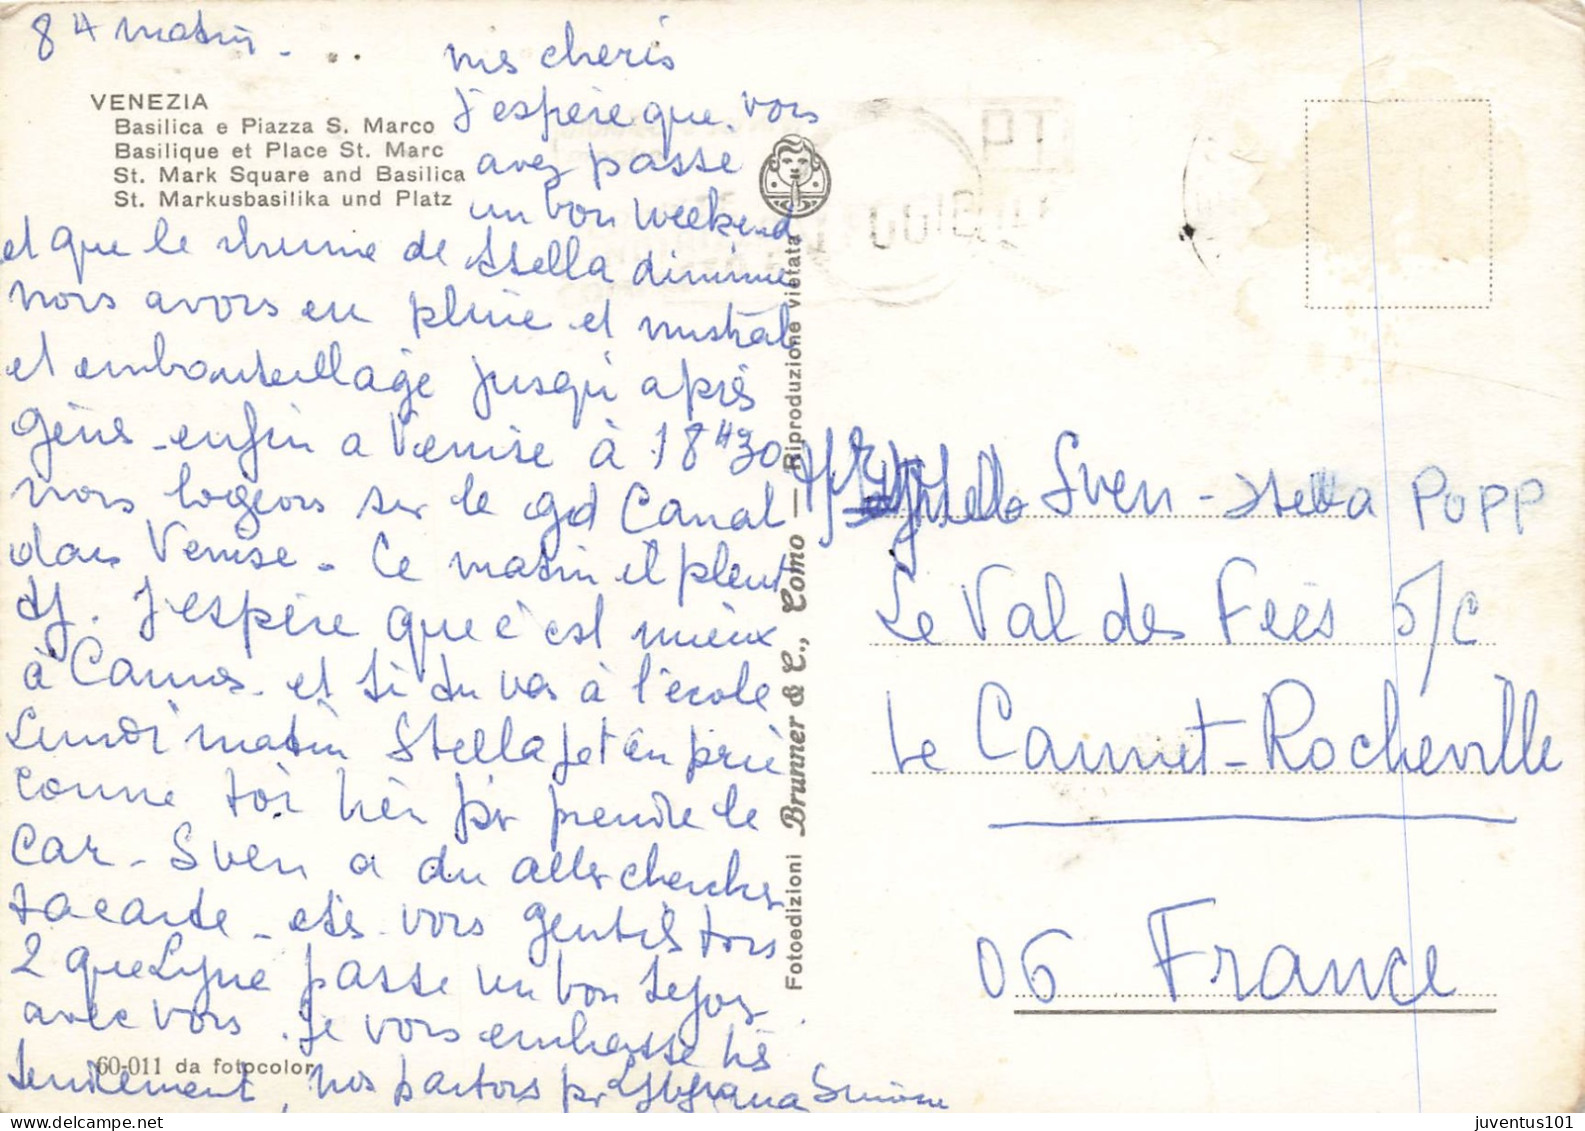 8 H matin -
mes cheris
VENEZIA
Basilica e Piazza S. Marco
Basilique et Place St. Marc
St. Mark Square and Basilica
St. Markusbasilika und Platz
J'espère que vous
avez passé
un bon weekend
et que le rhume de Stella diminue
nous avons eu pluie et mistral
et embouteillage jusqu'après
Gênes - enfin a Venise à 18H30
nous logeons sur le gd Canal
dans Venise - Ce matin il pleut
J'espère que c'est mieux
à Cannes - et si tu vas à l'école
Lundi matin Stella je t'en prie
comme toi hier pr prendre le
car - Sven a du aller chercher
ta carte - etes vous gentils tous
2 que Lyne passe un bon sejour
avec vous. Je vous embrasse trés
tendrement, nos partons pr
60-011 da fotocolor
Fotoedizioni Brunner & C., Como — Riproduzione vietata
Sven - Stella POPP
Le Val des Fées 5/C
Le Cannet-Rocheville
06 France
juventus101